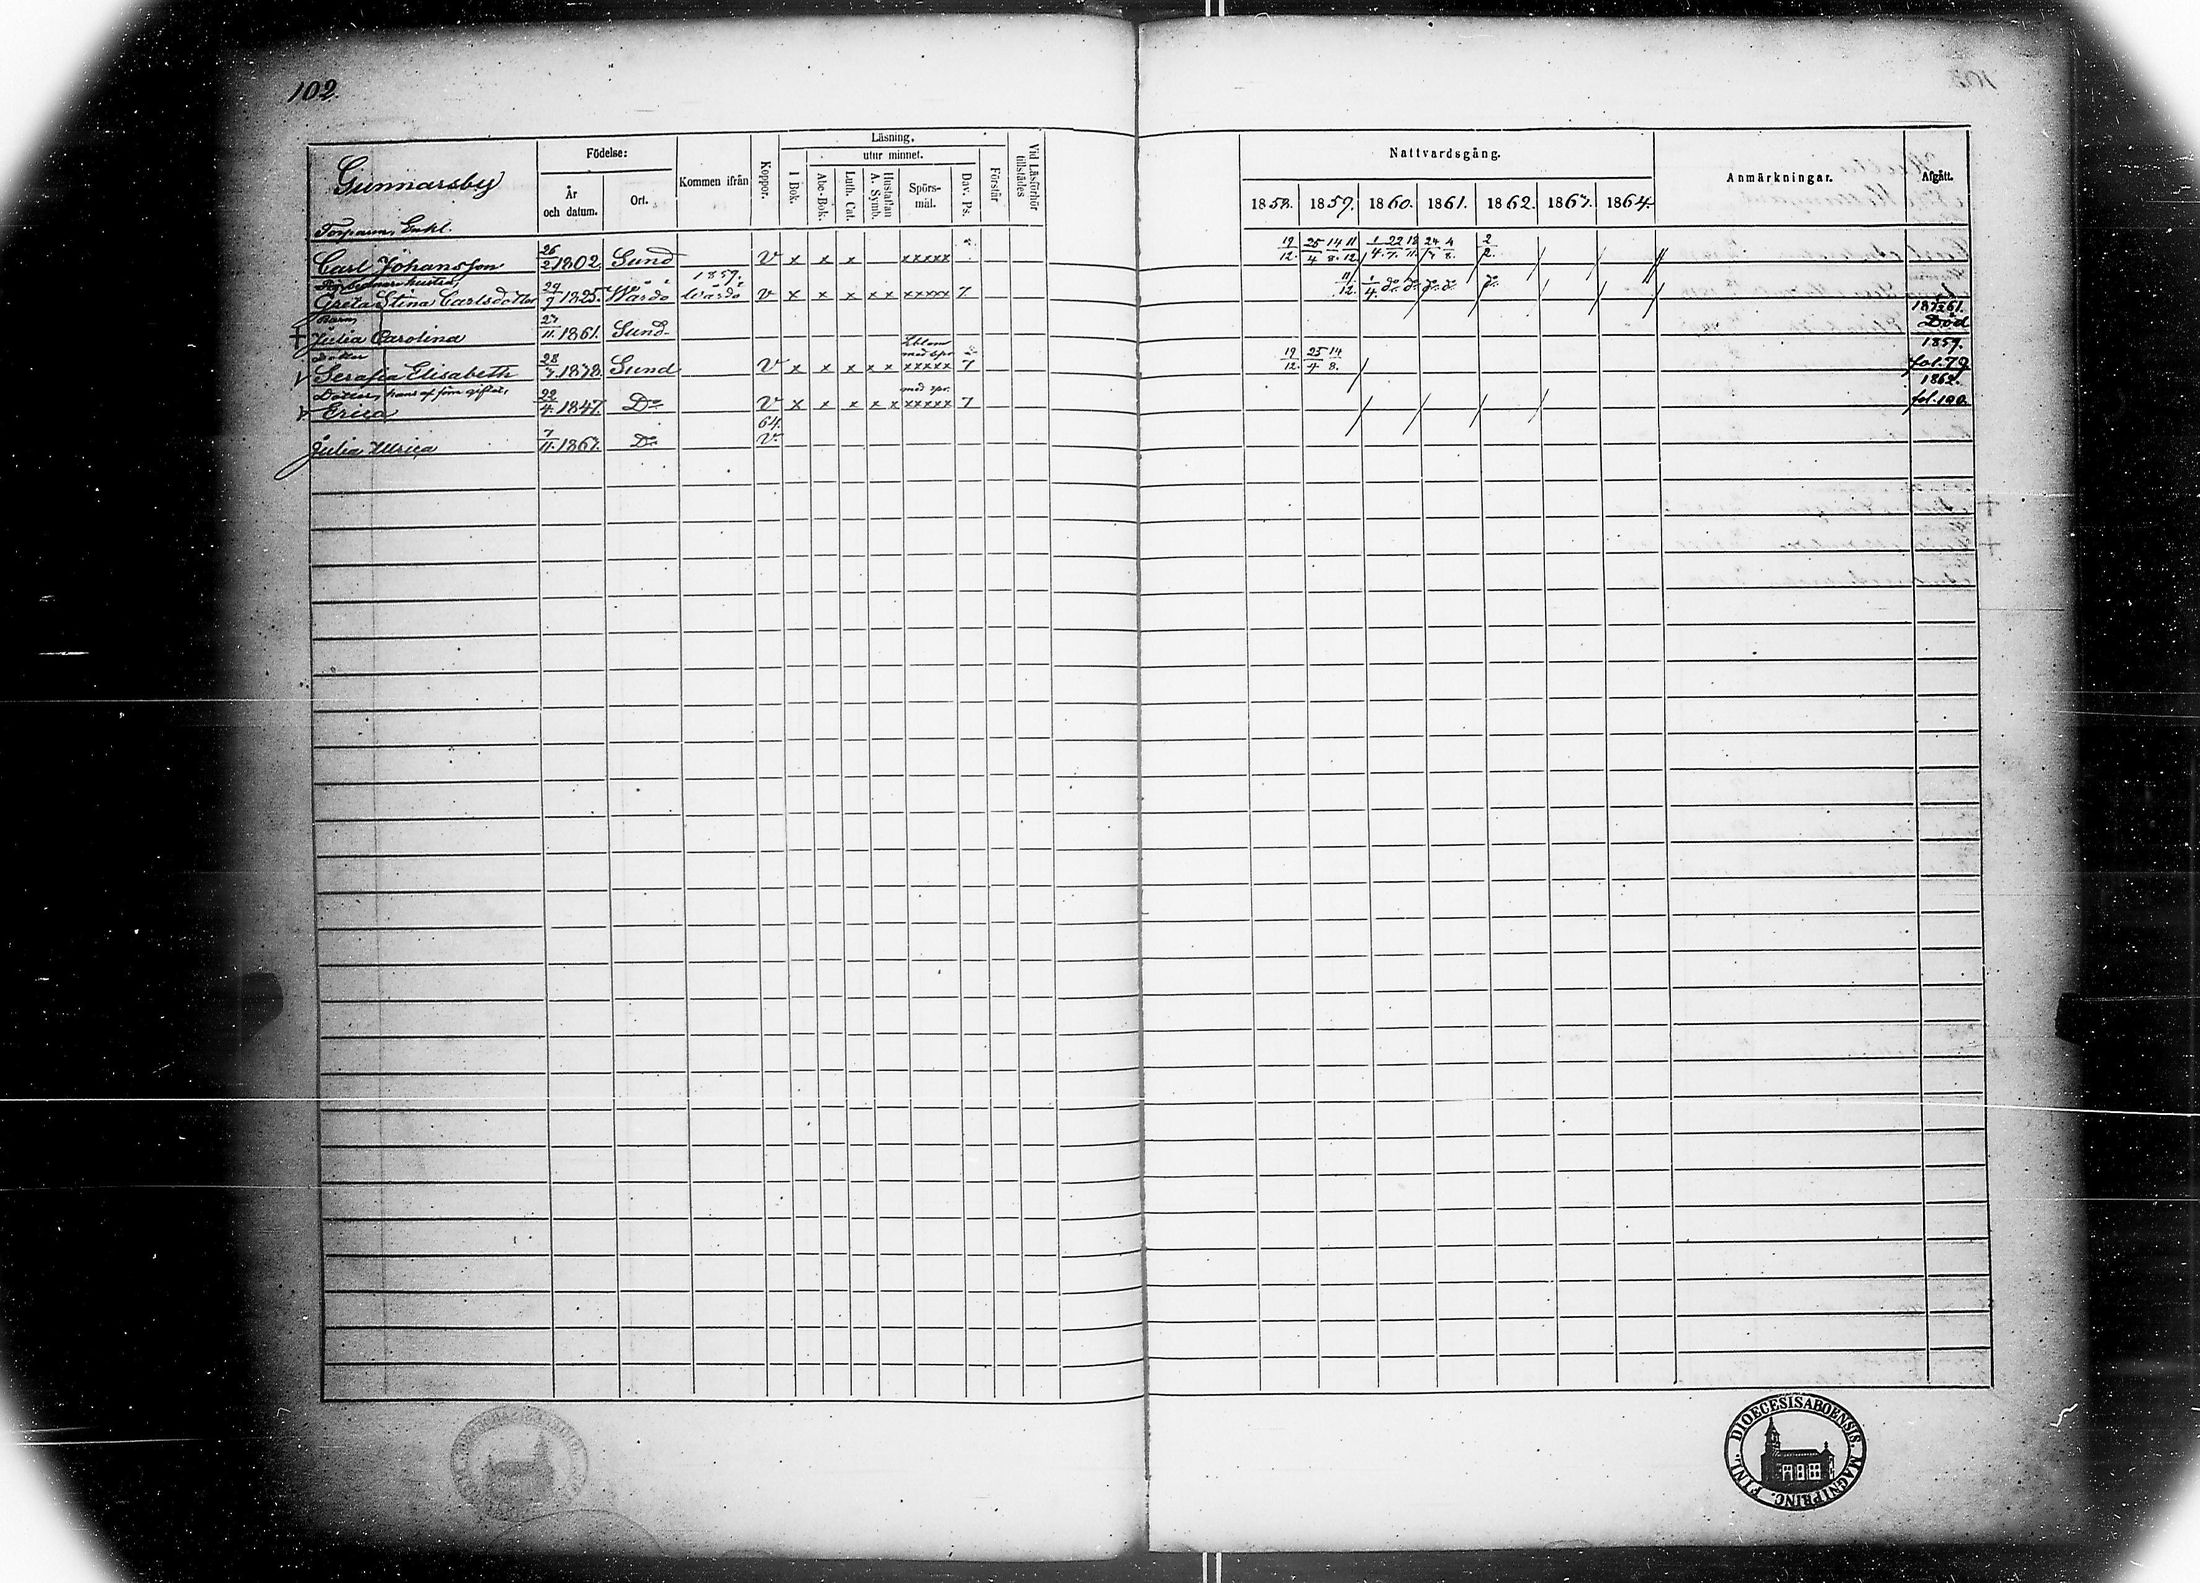 102.
Gunnarsby
Födelse:
År och datum.
Ort.
Kommen ifrån
Koppor.
Läsning,
I Bok.
utur minnet.
Abc-Bok.
Luth. Cat.
Hustaflan A. Symb.
Spörsmål.
Dav. Ps.
Förstår
Vid Läsförhör tillstädes
Nattvardsgång.
1858. 1859. 1860. 1861. 1862. 1863. 1864.
Anmärkningar.
Afgått.
Torparen, Enkl.
Carl Johansson 26/2 1802. Sund V x x x xxxxx 19/12. 25/4 14/8. 11/12 1/4. 22/7. 18/11. 24/ 4/8. 2/2.
hustru
Greta Stina Carlsdotter 29/9 1825. Wårdö 1859. Wårdö V x x x x x xxxxx 7 11/12. 1/4. do do do do do
Barn,
† Julia Carolina 27/11. 1861. Sund 1861. Död
Dotter
Serafia Elisabeth 28/7. 1838. Sund V x x x x x med spr. xxxxx 7 19/12. 25/4 14/8. 1859. fol. 79.
Dotter, hans af förra giftet,
Erica 22/4. 1847. Do V x x x x x med spr. xxxxx 7 1862. fol. 100.
Julia Ulrica 7/11. 1863. Do 64. V.
DIOECESIS ABOENSIS. MAGNI PRINC. FINL.